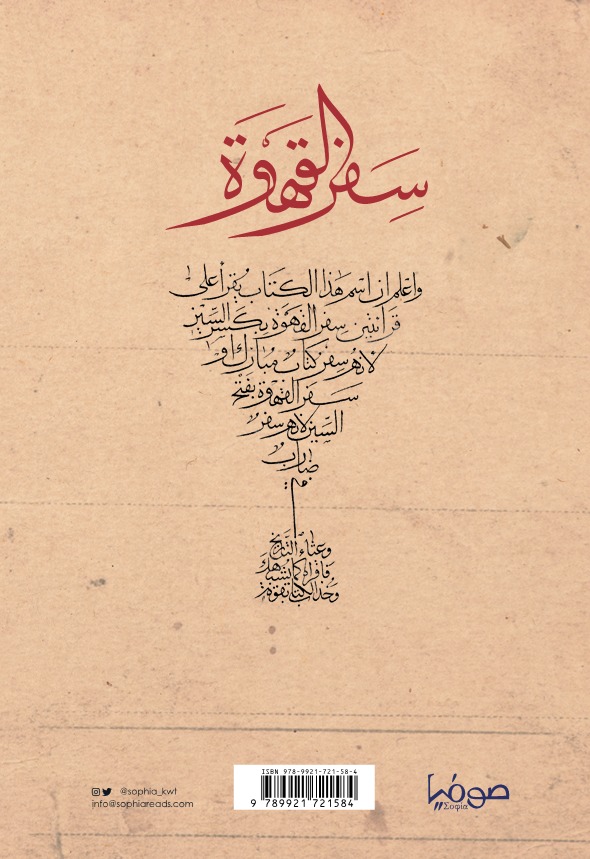 سفر القهوة
واعلم ان اسم هذا الكتاب يُقرأ على
قرائتين سفر القهوة بكسر السين
لانه سفر كتاب مبارك او
سفر القهوة بفتح
السين لانه سفر
ضارب
وعثاء التاريخ
فاقرأه كما يشبهك
وخذ الكتاب بقوة
ISBN 978-9921-721-58-4
9 789921 721584
@sophia_kwt
info@sophiareads.com
صوفيا
Σοφία